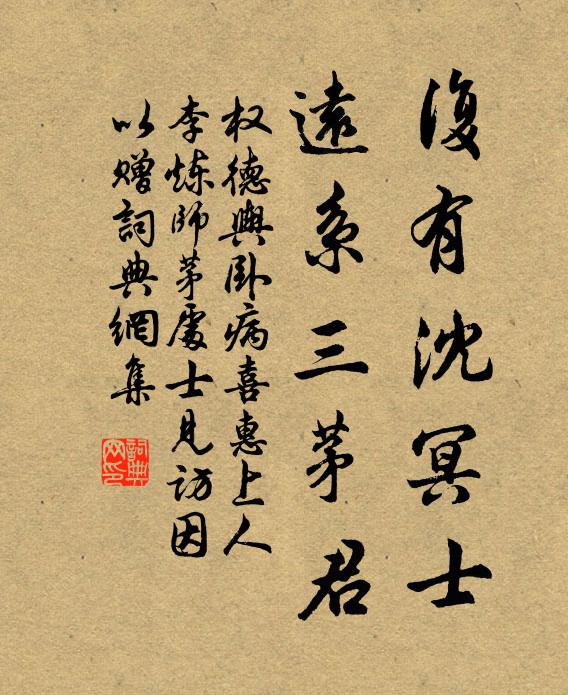 復有沈冥士
遠系三茅君
权德輿卧病喜惠上人
李炼師茅處士見訪因
以赠詞典網集
詞典网印